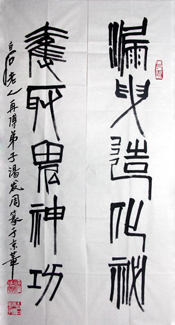 漏曳造化秘
奪取鬼神功
白石老人再傳弟子湯發周篆于京華